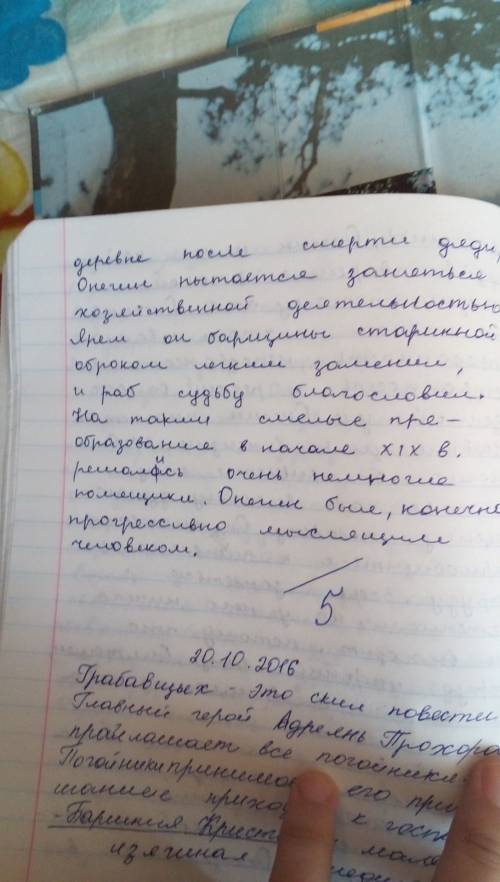 деревне после смерти дяди,
Онегин пытается заняться
хозяйственной деятельностью
Ярем он барщины старинной
оброком легким заменил,
и раб судьбу благословил.
На такии смелые пре-
образование в начале XIX в.
решались очень немногие
помещики. Онегин был, конечно
прогрессивно мыслящим
человеком.
5
20.10.2016
это повести
Главный герой Адреянь Прохоро
прайлашает все погойники
Погойники принимаю его при
шание прихо к гост
Барышня Крист мал